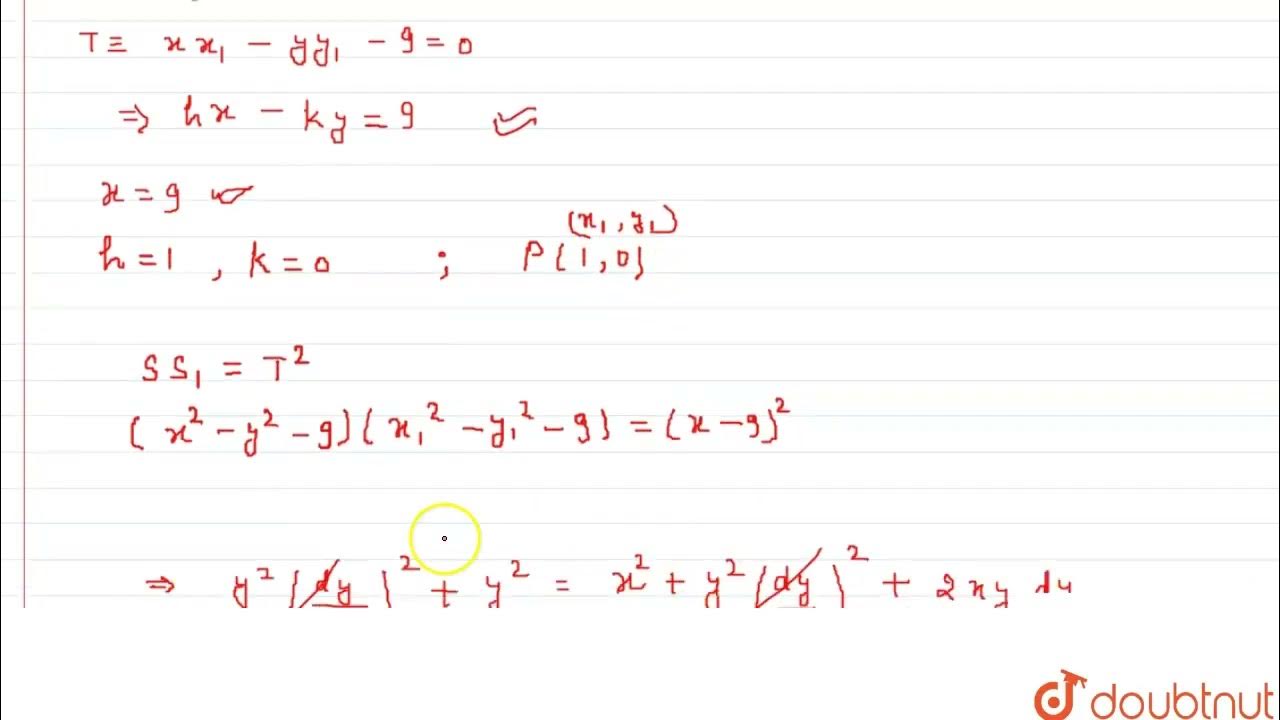 T ≡ x x₁ - y y₁ - 9 = 0
⇒ hx - ky = 9
x = 9
h = 1 , k = 0 ; P(1,0)
(x₁, y₁)
S S₁ = T²
(x² - y² - 9)(x₁² - y₁² - 9) = (x - 9)²
⇒ y² (dy)² + y² = x² + y² (dy)² + 2xy
doubtnut